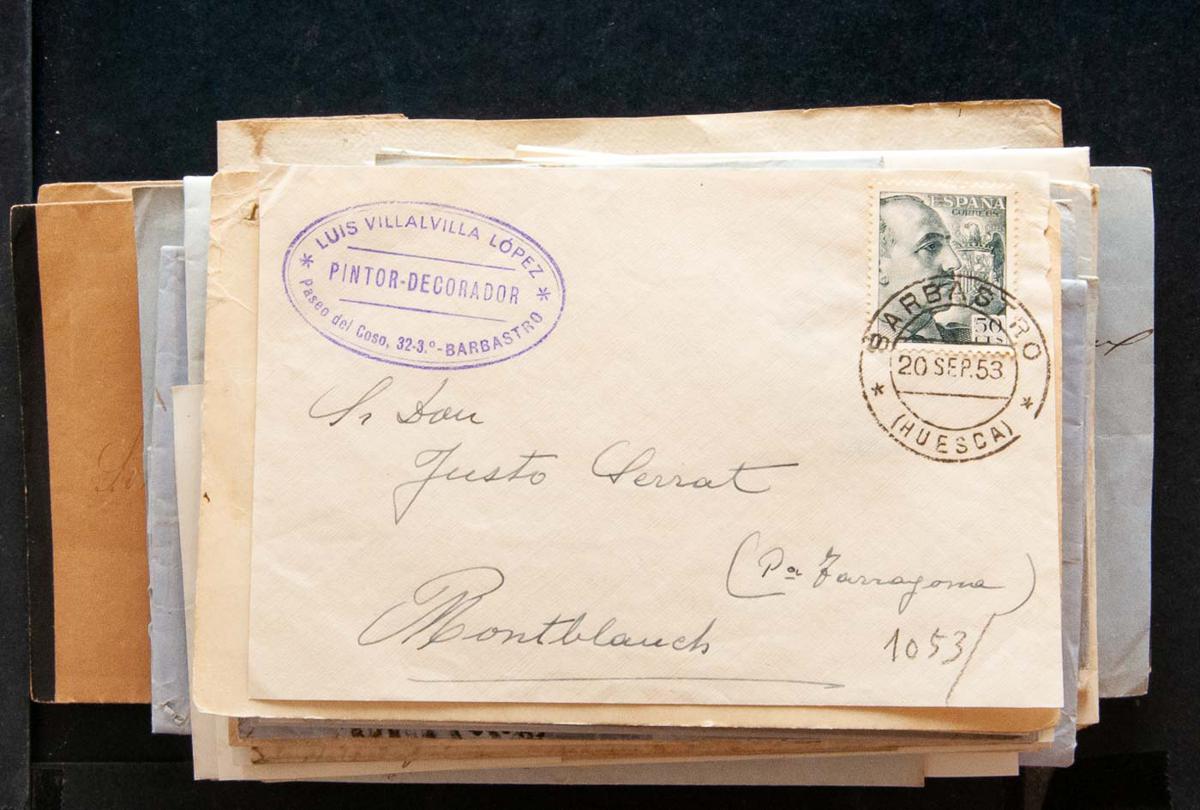 * LUIS VILLALVILLA LÓPEZ *
PINTOR-DECORADOR
Paseo del Coso, 32-3.º-BARBASTRO
ESPAÑA
CORREOS
50
CTS
BARBASTRO
20 SEP.53
* (HUESCA) *
Sr Don
Justo Serrat
(Pª Tarragona)
Montblanch
1053